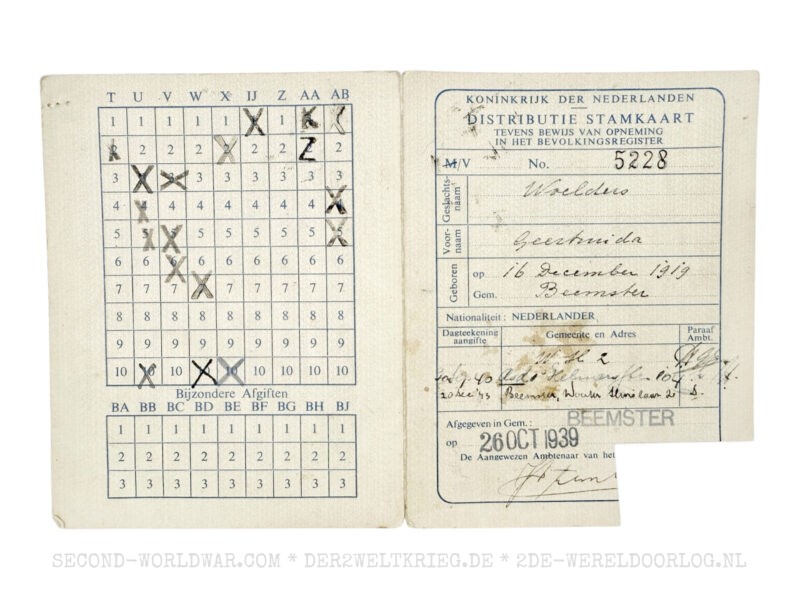 T U V W X IJ Z AA AB
1 1 1 1 1 1
2 2 2 2 2 2 2
3 3 3 3 3 3 3
4 4 4 4 4 4 4 4
5 5 5 5 5 5 5 5 5
6 6 6 6 6 6 6 6 6
7 7 7 7 7 7 7 7
8 8 8 8 8 8 8 8 8
9 9 9 9 9 9 9 9 9
10 10 10 10 10 10 10 10
Bijzondere Afgiften
BA BB BC BD BE BF BG BH BJ
1 1 1 1 1 1 1 1 1
2 2 2 2 2 2 2 2 2
3 3 3 3 3 3 3 3 3
KONINKRIJK DER NEDERLANDEN
DISTRIBUTIE STAMKAART
TEVENS BEWIJS VAN OPNEMING
IN HET BEVOLKINGSREGISTER
M/V No. 5228
Geslachtsnaam Woelders
Voornaam Geertruida
Geboren op 16 December 1919
Gem. Beemster
Nationaliteit: NEDERLANDER
Dagteekening aangifte Gemeente en Adres Paraaf Ambt.
W. 2
40
Beemster, Wouter
Afgegeven in Gem.: BEEMSTER
op 26 OCT 1939
De Aangewezen Ambtenaar van het
SECOND-WORLDWAR.COM * DER2WELTKRIEG.DE * 2DE-WERELDOORLOG.NL